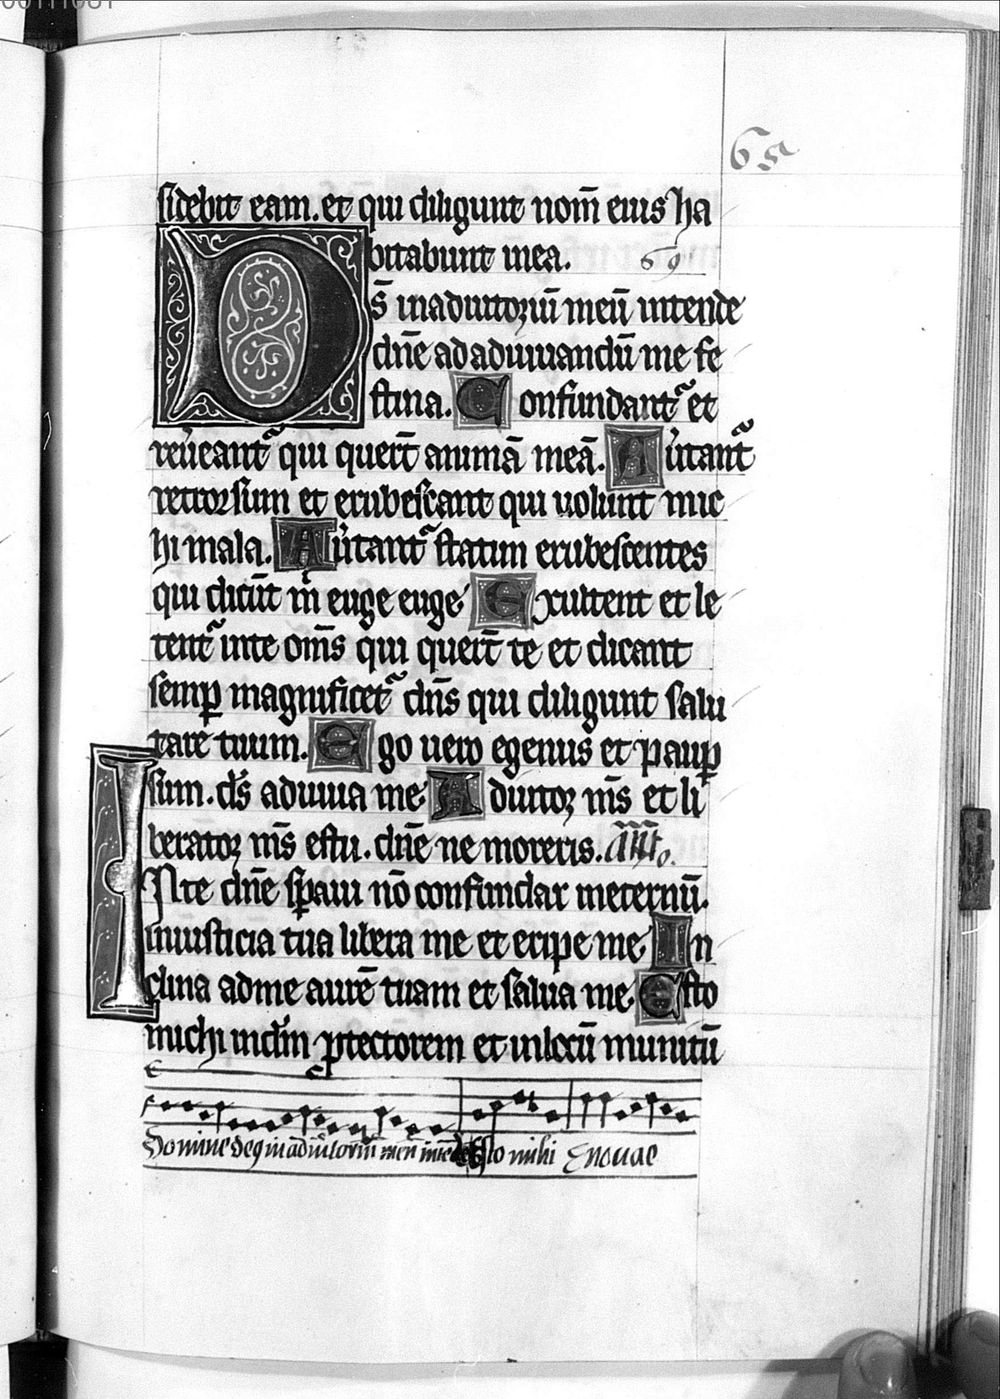 65
sidebit eam. et qui diligunt nom̄ eius ha
bitabunt inea. 69
Ds̄ inadiutoriū meū intende
dn̄e ad adiuuandū me fe
stina. Confundant᷑ et
reu̾eant᷑ qui quer̄t animā meā. Au̾tant᷑
retrorsum et erubescant qui uolunt mic
hi mala. Au̾tant᷑ statim erubescentes
qui dicūt m̄ euge euge Exultent et le
tent᷑ inte om̄s qui quer̄t te et dicant
semꝑ magnificet᷑ dn̄s qui diligunt salu
tare tuum. Ego uero egenus et pauꝑ
sum. ds̄ adiuua me Adiutor ms̄ et li
berator ms̄ estu. dn̄e ne moreris.
INte dn̄e sꝑaui nō confundar ineternū.
iniusticia tua libera me et eripe me In
clina adme aurē tuam et salua me Esto
michi indm̄ ꝓtectorem et inlocū munitū
Domine deus in adiutoriū meū intēde Esto mihi Enouae